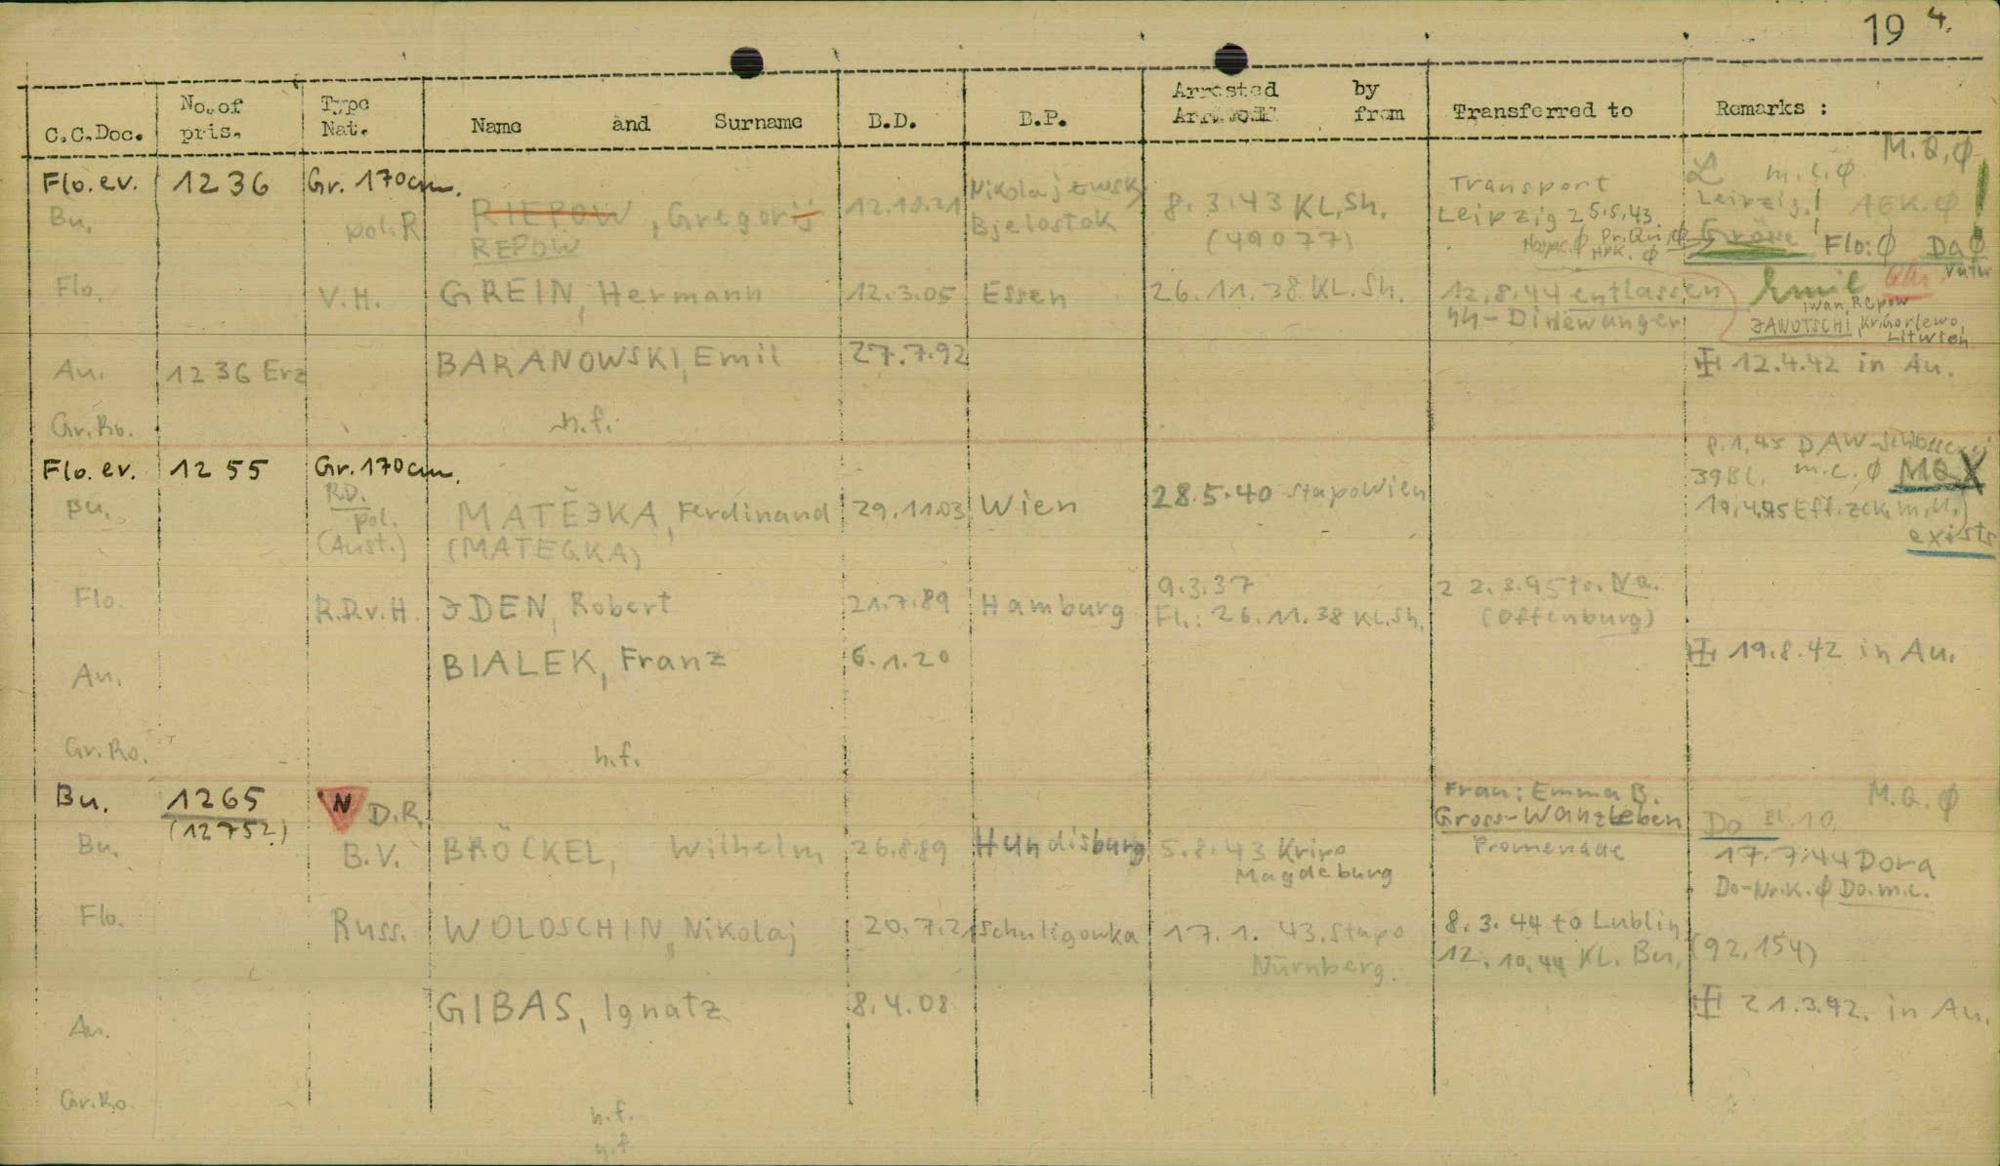 19 4.
C.C.Doc. No.of pris. Type Nat. Name and Surname B.D. B.P. Arrested by from Transferred to Remarks :
M.Q.∅
Flo.ev. 1236 Gr. 170cm. m.c.∅
Bu. pol.R RIEPOW, Gregorij 12.10.21 Bjelostok 8.3.43 KL.Sh. Transport Leipzig 25.5.43 Leipzig! AEK.∅
REPOW (49077) Flo:∅ Da∅
Flo. V.H. GREIN, Hermann 12.3.05 Essen 26.11.38 KL.Sh. 12.8.44 entlassen Emil
Iwan, Repow
JANUTSCHI
An. 1236 Erz BARANOWSKI, Emil 27.7.92 12.4.42 in Au.
Gr.Ro. n.f.
Flo.ev. 1255 Gr.170cm. 39Bl. m.c.∅ MQ
Bu. R.D. pol. (Aust.) MATĚJKA, Ferdinand 29.11.03 Wien 28.5.40 StapoWien
exists
Flo. R.D.v.H. JDEN, Robert 21.7.89 Hamburg 9.3.37
Fl.: 26.11.38 KL.Sh. (Offenburg)
An. BIALEK, Franz 6.1.20 19.8.42 in Au.
Gr.Ro. n.f.
Bu. 1265 N D.R. Frau: Emma B. M.Q.∅
(12752) Gross-Wanzleben Do
Bu. B.V. BRÖCKEL, Wilhelm 26.8.89 Hundisburg 5.8.43 Kripo Magdeburg Promenade 17.7.44 Dora
Do-Nr.K.∅ Do.m.c.
Flo. Russ. WOLOSCHIN, Nikolaj 20.7.21 Schuligowka 17.1.43.Stapo 8.3.44 to Lublin
Nürnberg. 12.10.44 KL. Bu. (92,154)
An. GIBAS, Ignatz 8.4.08 21.3.42. in Au.
Gr.Ro. n.f.
n.f